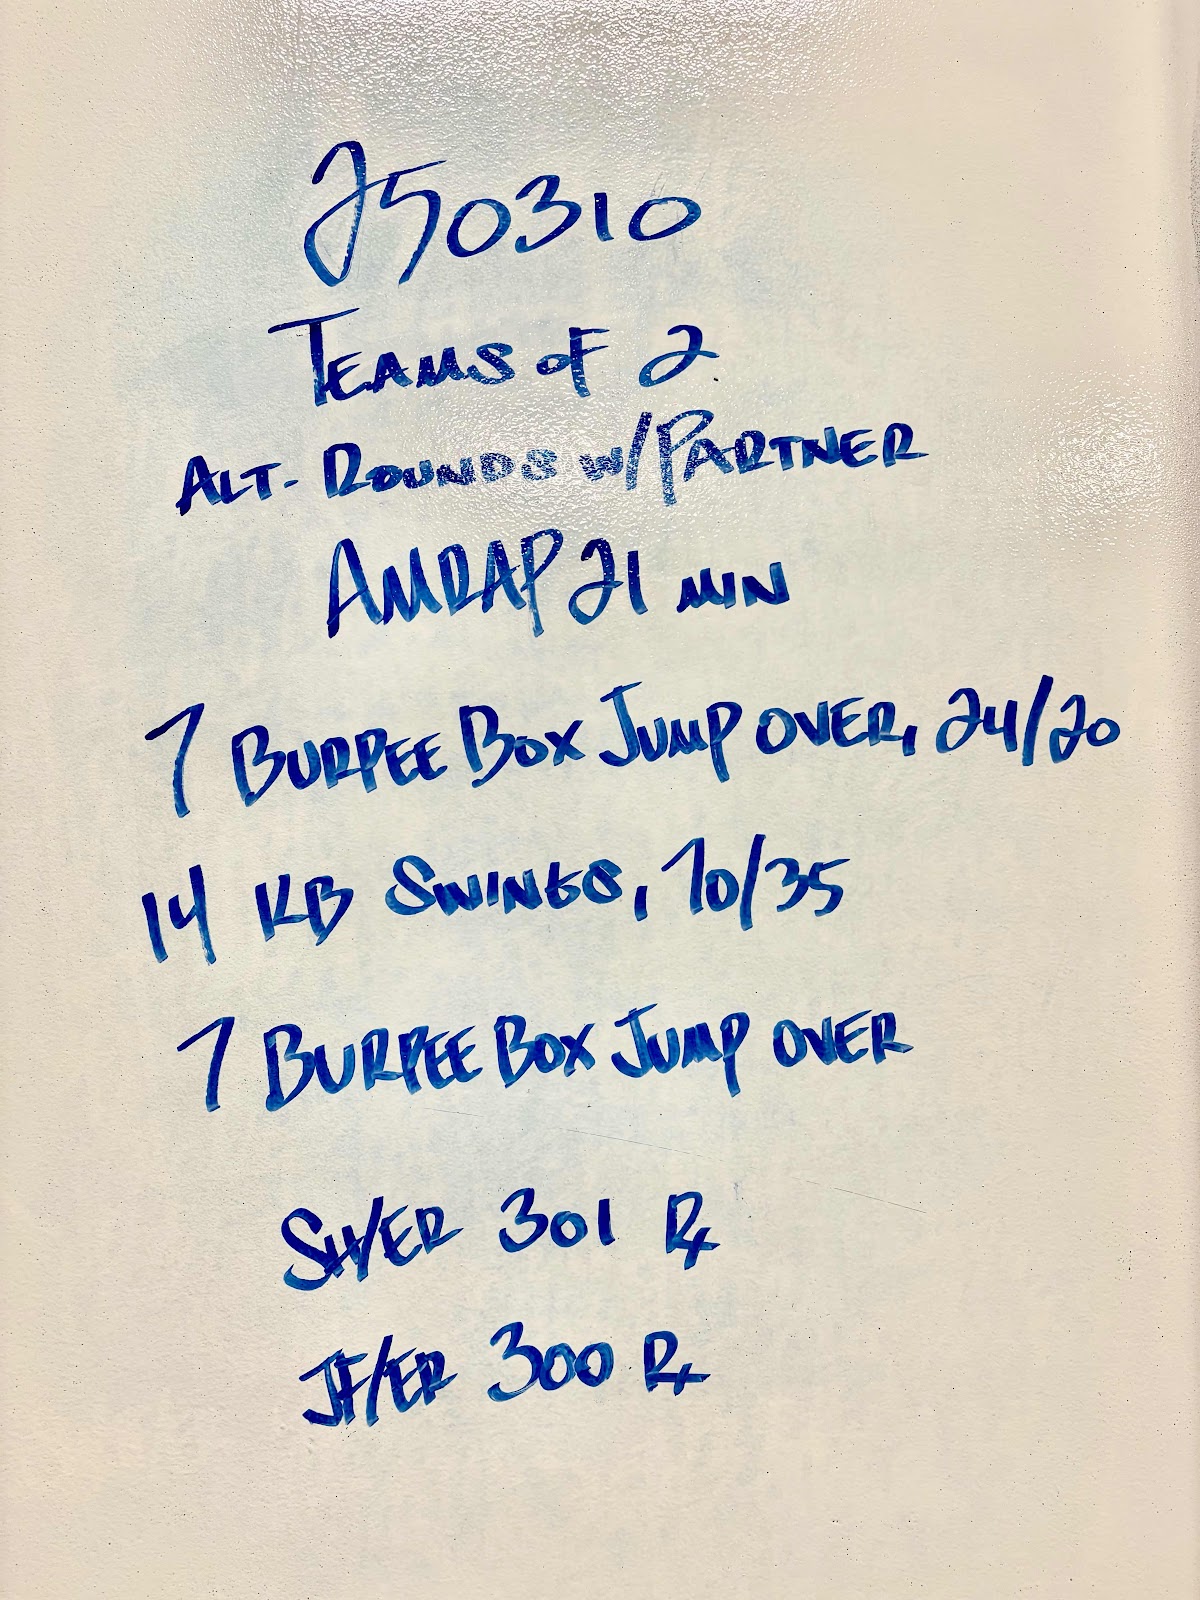 250310
TEAMS OF 2
ALT. ROUNDS W/PARTNER
AMRAP 21 MIN
7 BURPEE BOX JUMP OVER, 24/20
14 KB SWINGS, 70/35
7 BURPEE BOX JUMP OVER
SH/ER 301 Rx
JF/ER 300 Rx